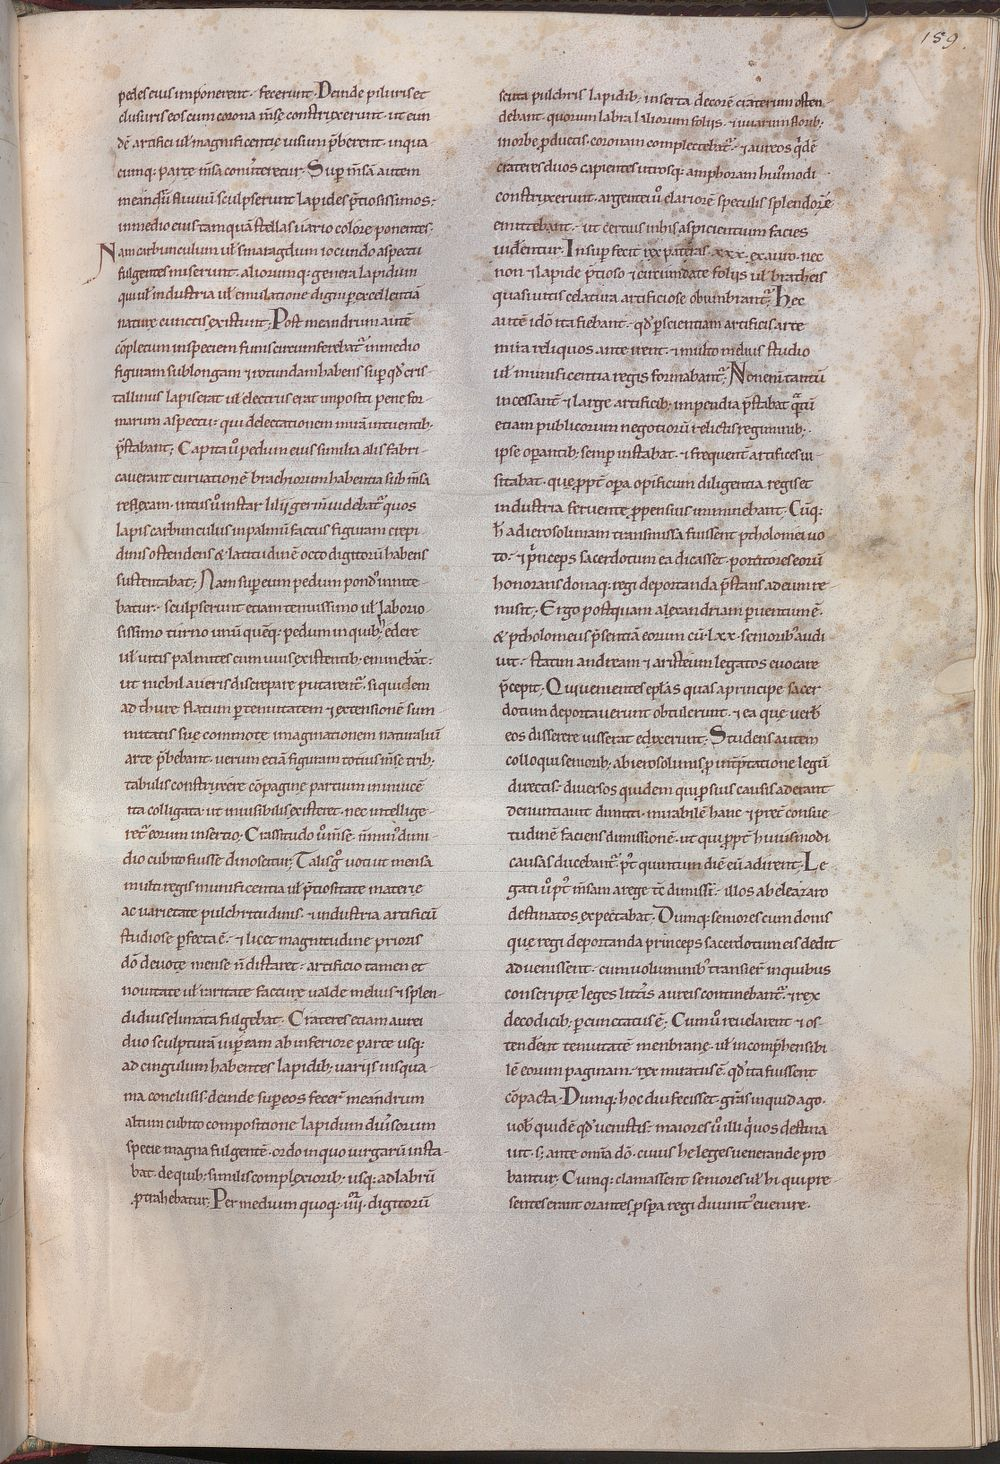 159.
pedes eius imponerent· fecerunt· Deinde piluris et
clusuris eos cum corona m̅se construxerunt· ut eun
dē artifici ul̅ magnificentię uisum p̅berent· inqua
cumq; parte m̅sa conu̅teretur· Sup̲ m̅sā autem
meandrū fluuiū sculpserunt lapides p̅tiosissimos·
inmedio eius tamquā stellas uario colore ponentes·
Nam carbunculum ul̅ smaragdum iocundo aspectu
fulgentes miserunt· aliorumq; genera lapidum
qui ul̅ industria ul̅ emulatione digni p̲ excellentiā
naturę cunctis existunt; Post meandrum autē
cōplecum inspeciem funis circumferebat᷑ inmedio
figuram sublongam ⁊ rotundam habens sup̲ qđ cris
tallinus lapis erat ul̅ electrus erat impositi pene for
marum aspectu· qui delectationem mirā intuentib;
p̅stabant; Capita u̅ pedum eius similia aliis fabri
cauerant curuationē brachiorum habentia sub m̅sa
reflexam· intus u̅ instar lilij germ̅ uidebat᷑ quos
lapis carbunculus inpalmū factus figuram crepi
dinis ostendens & latitudinē octo digitorū habens
sustentabat; Nam sup̲ eum pedum pond᷒ innite
batur· sculpserunt etiam tenuissimo ul̅ laborio
sissimo turno unū quēq; pedum in quib; edere
ul̅ uitis palmites cum uuis existentib; eminebāt·
ut nichil a ueris discrepare putarent᷑· siquidem
ad thure flatum p̲ tenuitatem ⁊ extensionē sum
mitatis suę commotę imaginationem naturaliū
arte p̅bebant· uerum etiā figuram totius m̅se trib;
tabulis construxere cōpagine partium in inuicē
ita colligata· ut inuisibilis existeret· nec intellige
ret᷑ eorum insertio; Crassitudo u̅ m̅se n̅ min᷒ dimi
dio cubito fuisse dinoscitur; Talisq; uoti ut mensa
multi regis munificentia ul̅ p̅tiositate materię
ac uarietate pulchritudinis· ⁊ industria artificū
studiose p̲fecta ē· ⁊ licet magnitudine prioris
dō deuotę mense n̅ distaret· artificio tamen et
nouitate ul̅ raritate facturę ualde melius ⁊ splen
didius elimata fulgebat· Crateres etiam aurei
duo sculpturā uip̲eam ab inferiore parte usq;
ad cingulum habentes lapidib; uariis insqua
ma conclusis· deinde sup̲ eos fecer̅ meandrum
altum cubito compositione lapidum diu̅sorum
specie magna fulgentē· ordo in quo uirgarū insta
bat· de quib; similis complexiorib; usq; ad labrū
p̲trahebatur; Per medium quoq; iiii· digitorū
scuta pulchris lapidib; inserta decorē craterum osten
debant· quorum labra liliorum foliis· ⁊ uuarum florib;
in orbe p̲ductis· coronam complectebat᷑· ⁊ aureos qđē
crateres duos capientes utrosq; amphoram hui᷒modi
construxerunt· argentei u̅ clariorē speculis splendorē
emittebant· ut certius in his aspicientium facies
uidentur· Insup̲ fecit rex pateras· xxx· ex auro· nec
non ⁊ lapide p̅tioso ⁊ circumdate foliis ul̅ bratheis
quasi uitis celatura artificiose obumbrant᷑; Hec
autē idō ita fiebant· qđ p̲ scientiam artificis arte
mira reliquos ante irent· ⁊ multo melius studio
ul̅ munificentia regis formabant᷑; Non eni̅ tantū
incessant̅ ⁊ large artificib; impendia p̅stabat q̅tū
etiam publicorum negotiorū relictis regiminib;·
ipse op̲antib; semp̲ instabat· ⁊ frequent̅ artifices ui
sitabat· que p̲pt̅ op̲a opificum diligentia regis et
industria feruente p̲pensius imminebant· Cūq;
h̅ ad ierosolimam transmissa fuissent ptholomei uo
to· ⁊ p̅nceps sacerdotum ea dicasset· portitores eorū
honorans donaq; regi deportanda p̅stans ad eum re
misit; Ergo postquam alexandriam p̲uentum ē·
& ptholomeus p̅sentiā eorum cū· lxx· seniorib᷒ audi
uit· statim andream ⁊ aristeum legatos euocare
p̅cepit; Qui uenientes epl̅as quas a principe sacer
dotum deportauerunt obtulerunt· ⁊ ea que uerb̅
eos disserere iusserat edixerunt; Studens autem
colloqui seniorib; ab ierosolimis p̲ int̅p̅tatione legū
directis· diuersos quidem qui p̲ suis causis aderant
denuntiauit dimitti· mirabilē hanc ⁊ pret̅ consue
tudinē faciens dimissionē· ut qui p̲pt̅ huiusmodi
causas ducebant᷑ p᷒t quintum diē eū adirent· Le
gati u̅ p᷒t m̅sam a rege t̅c dimissi· illos ab eleazaro
destinatos expectabat· Dumq; seniores cum donis
que regi deportanda princeps sacerdotum eis dedit
aduenissent· cum uoluminib᷒ transier̅ in quibus
conscripte leges litt̅is aureis continebant᷑· ⁊ rex
de codicib; p̲cunctatus ē; Cum u̅ reuelarent ⁊ os
tenderent tenuitatē menbrane· ul̅ incomp̅hensibi
lē eorum paginam· rex miratus ē· qđ ita fuissent
cōpacta· Dumq; hoc diu fecisset· gr̅as inquid ago·
uob̅ quidē qđ uenistis· maiores u̅ illi quos destina
uit· s; ante om̅ia dō· cuius he leges uenerande pro
bantur; Cumq; clamassent seniores ul̅ hi qui pre
sentes erant orantes p̲sp̲a regi diuinit᷒ euenire·